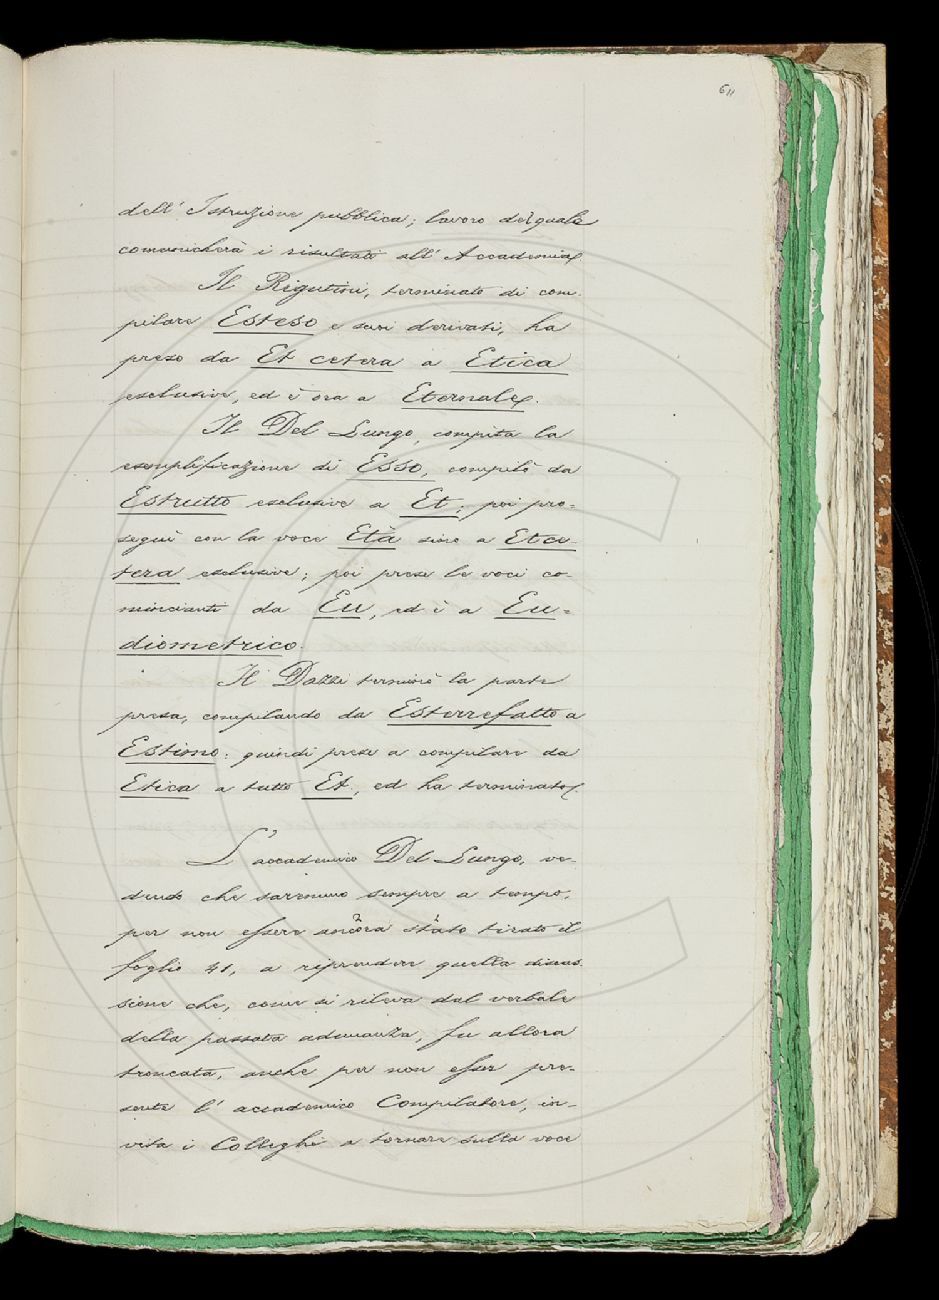 611
dell' Istruzione pubblica; lavoro del quale
comunicherà i risultati all' Accademia.
Il Rigutini, terminato di com-
pilare Esteso e suoi derivati, ha
preso da Et cetera a Etica
esclusive, ed è ora a Eternale.
Il Del Lungo, compiuta la
esemplificazione di Esso, compilò da
Estrutto esclusive a Et; poi pro-
seguì con la voce Età sino a Etce-
tera esclusive; poi prese le voci co-
mincianti da Eu, ed è a Eu-
diometrico.
Il Dazzi terminò la parte
presa, compilando da Esterrefatto a
Estimo: quindi prese a compilare da
Etica a tutto Et, ed ha terminato.
L' accademico Del Lungo, ve-
dendo che saremmo sempre a tempo,
per non essere ancora stato tirato il
foglio 41, a riprendere quella discus-
sione che, come si rileva dal verbale
della passata adunanza, fu allora
troncata, anche per non esser pre-
sente l' accademico Compilatore, in-
vita i Colleghi a tornare sulla voce